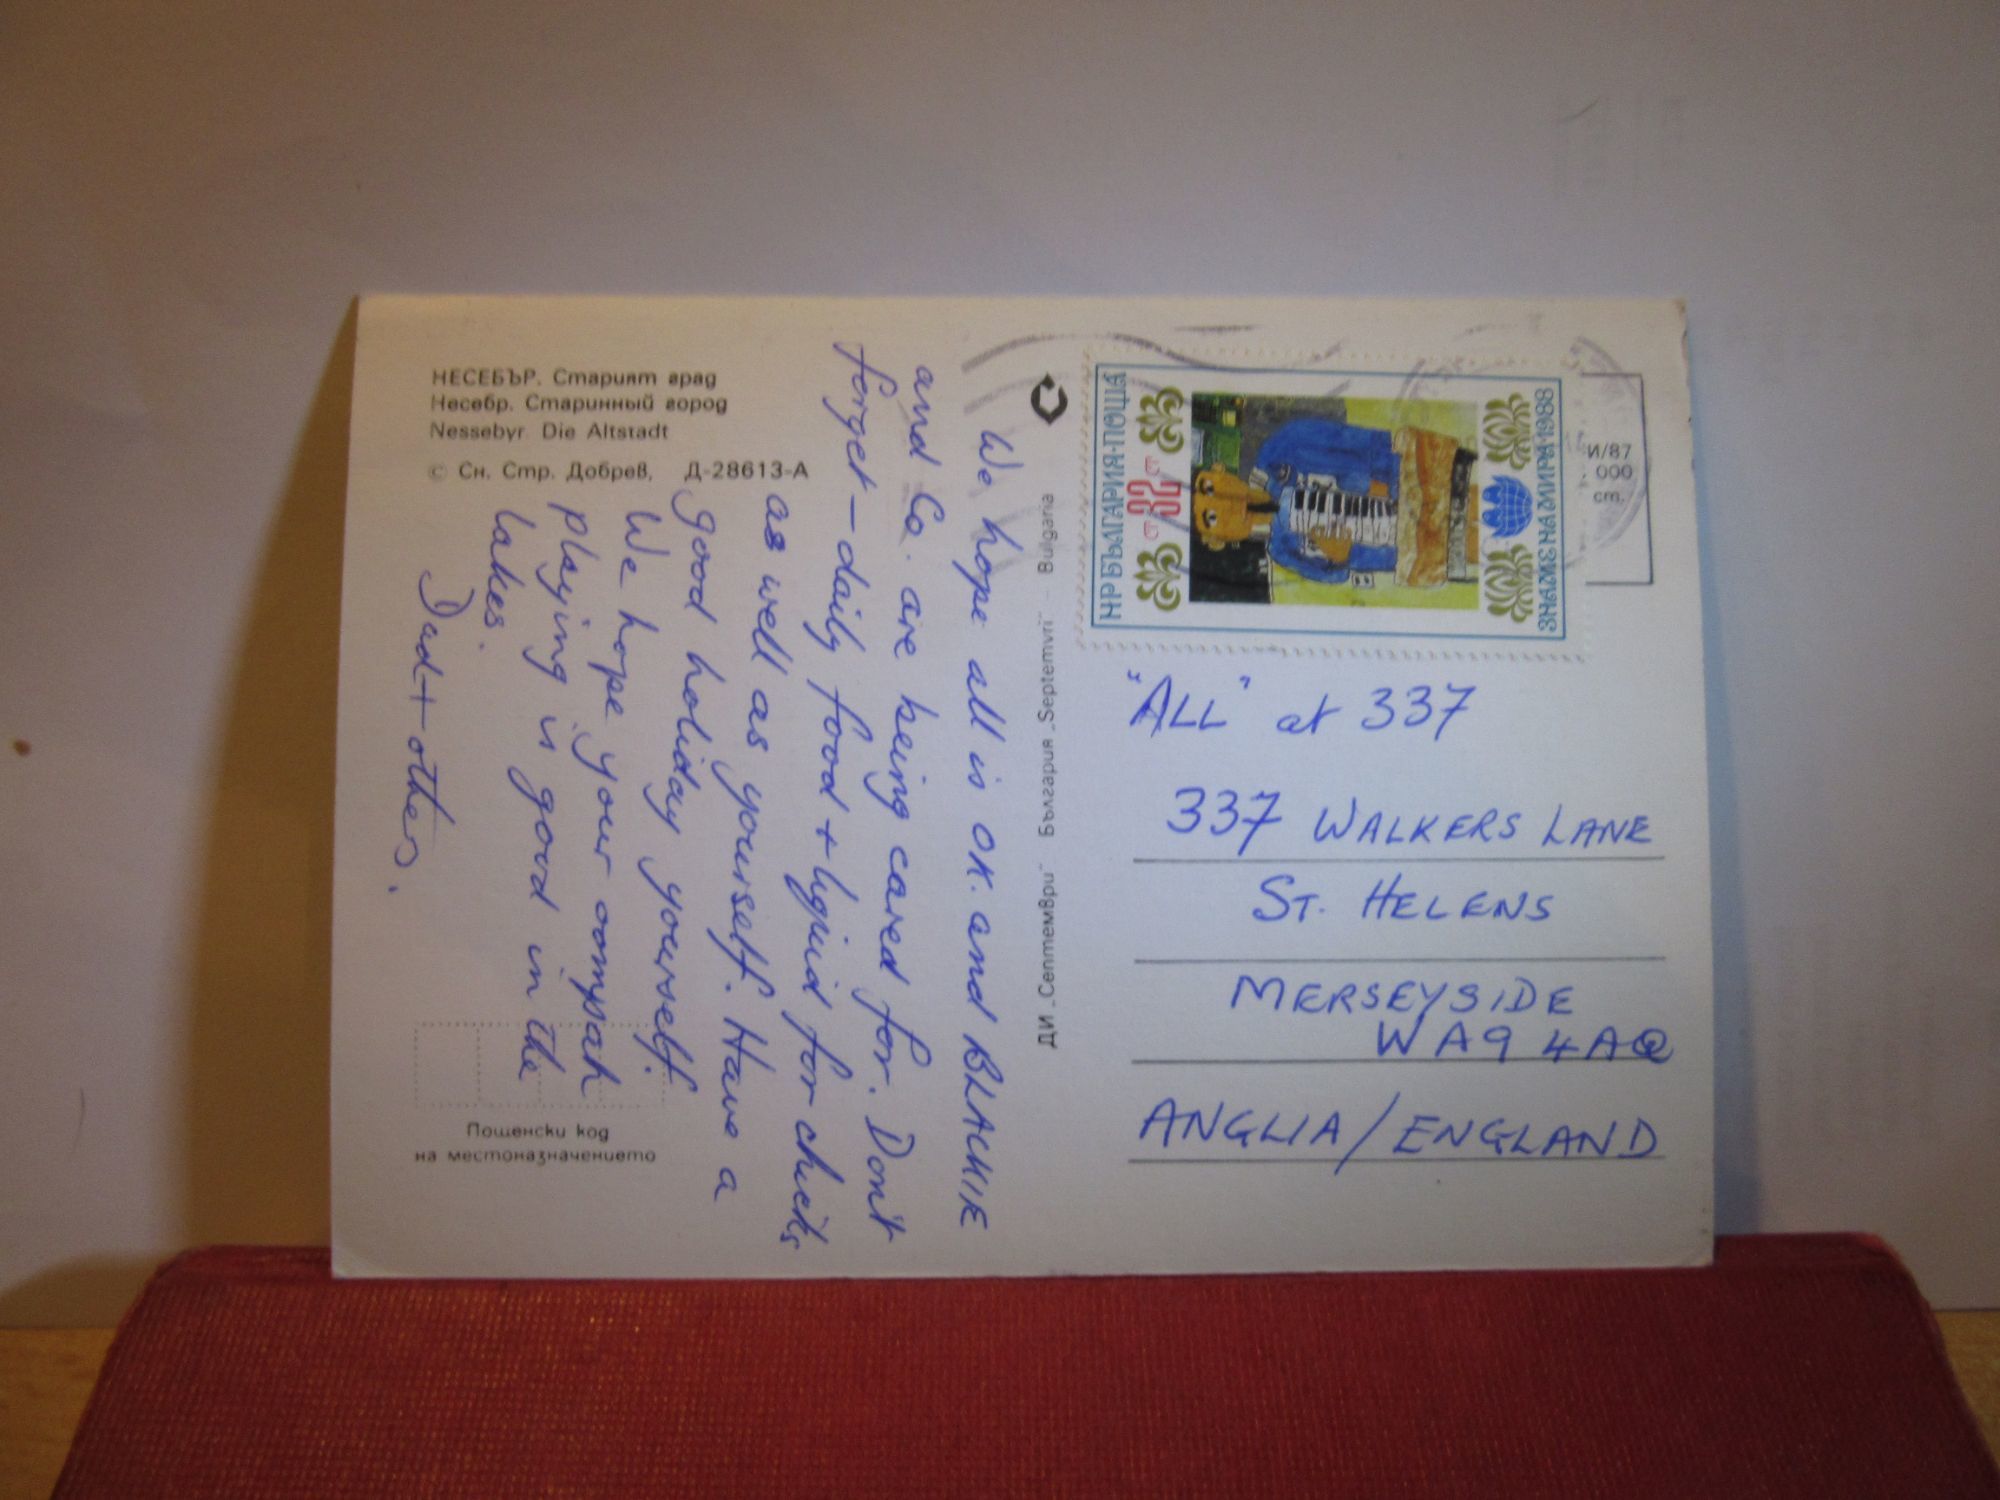 НЕСЕБЪР. Старият град
Несебр. Старинный город
Nessebyr. Die Altstadt
© Сн. Стр. Добрев, Д-28613-А
We hope all is OK. and BLACKIE
and Co. are being cared for. Don't
forget – daily food + liquid for chicks
as well as yourself. Have a
good holiday yourself.
We hope your
playing is good in the
lakes.
Dad + others.
Пощенски код
на местоназначението
ДИ „Септември" България „Septemvri" – Bulgaria
НР БЪЛГАРИЯ·ПОЩА
СТ 32 СТ
ЗНАМЕ НА МИРА·1988
И/87
000
ст.
"ALL" at 337
337 WALKERS LANE
ST. HELENS
MERSEYSIDE
WA9 4AQ
ANGLIA/ENGLAND